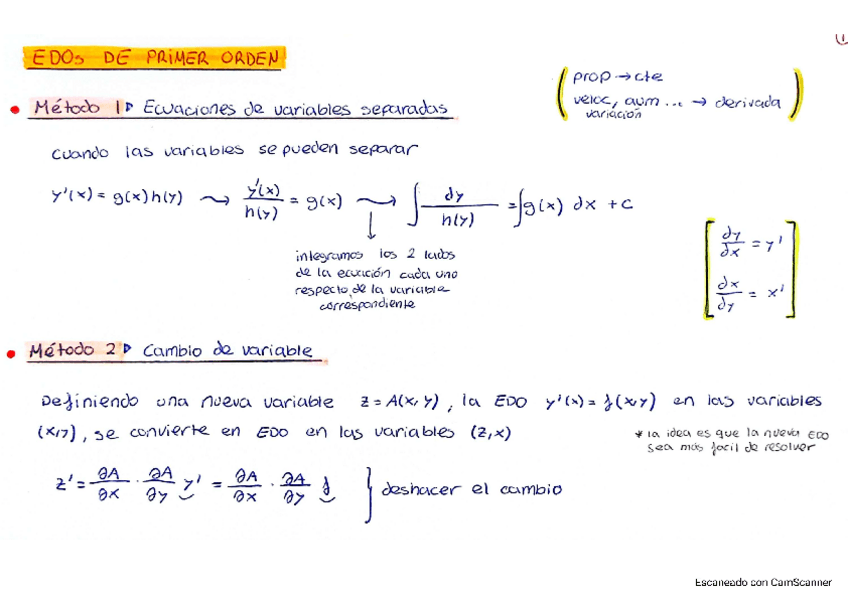 1
EDOs DE PRIMER ORDEN
(prop → cte
veloc, aum ... → derivada)
variación
• Método 1 ▷ Ecuaciones de variables separadas
cuando las variables se pueden separar
y'(x) = g(x)h(y) ⇝ y'(x)/h(y) = g(x) ⇝ ∫ dy/h(y) = ∫g(x) dx + C
integramos los 2 lados
de la ecuación cada uno
respecto de la variable
correspondiente
[dy/dx = y'
dx/dy = x']
• Método 2 ▷ Cambio de variable
Definiendo una nueva variable z = A(x, y), la EDO y'(x) = f(x,y) en las variables
(x,y), se convierte en EDO en las variables (z,x)
* la idea es que la nueva EDO
sea más facil de resolver
z' = ∂A/∂x · ∂A/∂y y' = ∂A/∂x · ∂A/∂y f } deshacer el cambio
Escaneado con CamScanner